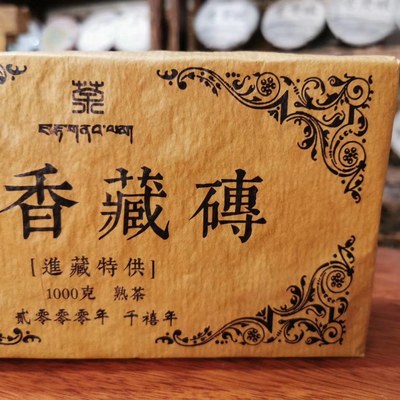 茶
香藏磚
[進藏特供]
1000克 熟茶
貳零零零年 千禧年